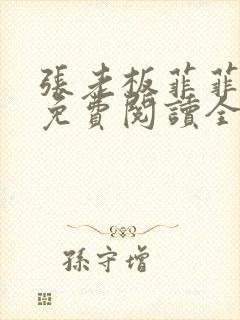 張老板菲菲
免費閱讀全
孫守增